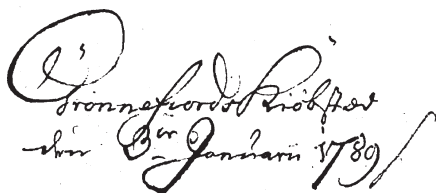 Grönnefiords Kiöbsted
den Januarii 1789